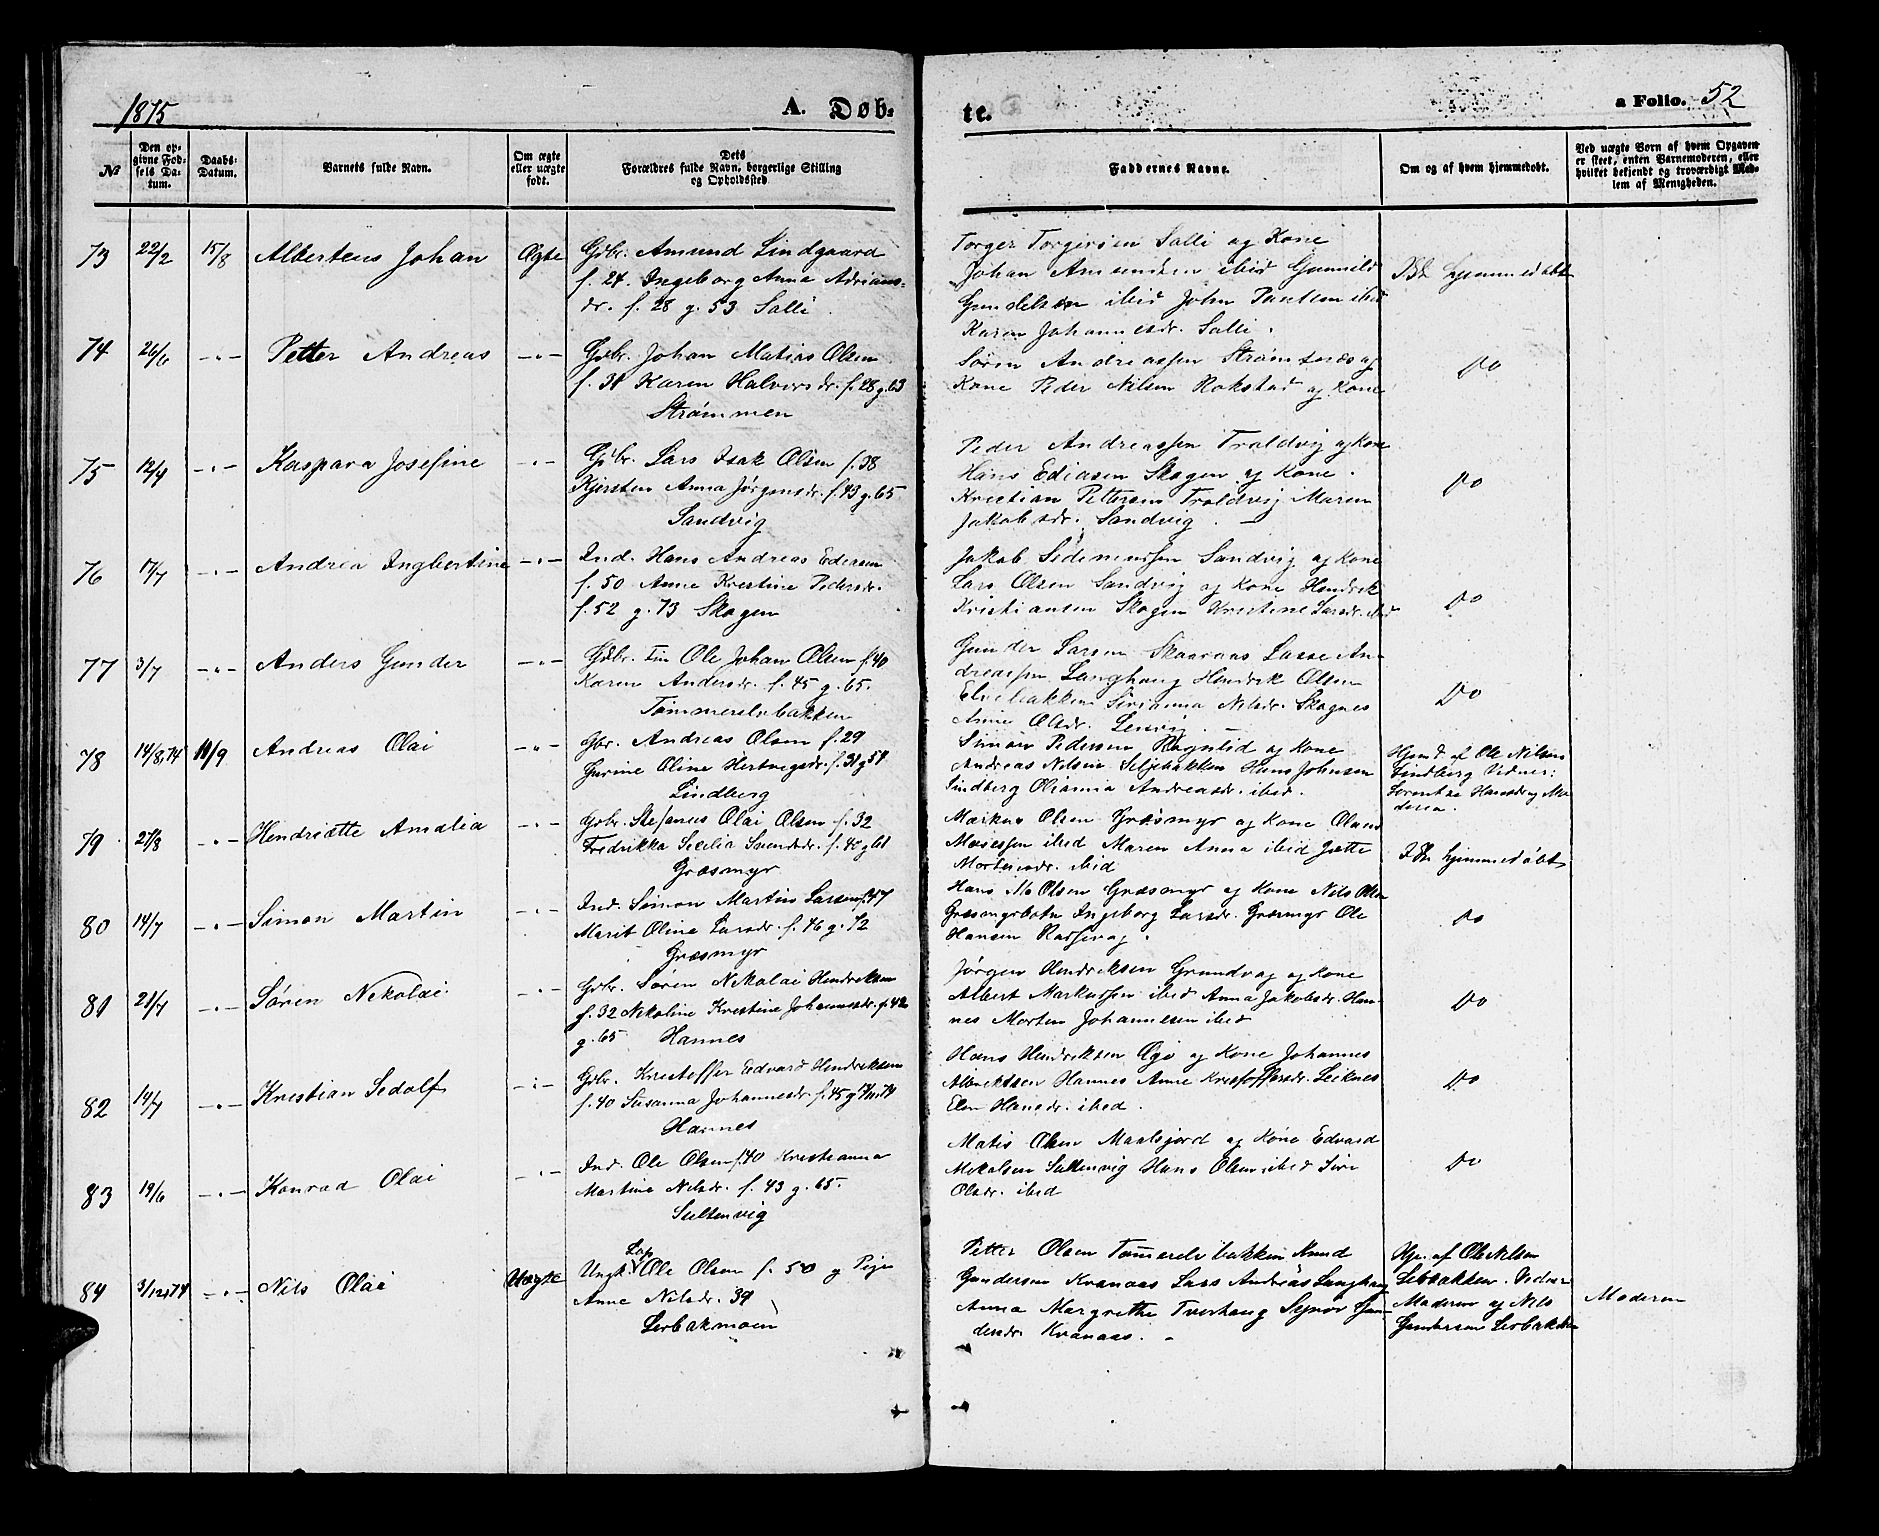 1875
A. Døb-
te.
a Folio. 52
№
Den op-
givne Fød-
sels Da-
tum.
Daabs-
Datum.
Barnets fulde Navn.
Om ægte
eller uægte
født.
Dets
Forældres fulde Navn, borgerlige Stilling
og Opholdssted.
Faddernes Navne.
Om og af hvem hjemmedøbt.
Ved uægte Børn af hvem Opgaven
er skeet, enten Barnemoderen, eller
hvilket bekjendt og troværdigt Med-
lem af Menigheden.
73 22/2 15/8 Albertens Johan Ægte
Gdbr. Amund Lindgaard
f. 24. Ingeborg Anna Adrians-
dr. f. 28 g. 53 Salli
Torger Torgersen Salli og Kone
Johan Amundsen ibid Gunnild
Gundelsen ibid John Paulsen ibid
Karen Johannesdr. Salli.
hjemmedøbt
74 26/6 -"- Petter Andreas -"-
Gdbr. Johan Matias Olsen
f. 31 Karen Halversdr. f. 28 g. 63
Strømmen
Søren Andreassen Strømsnes og
Kone Peder Nilsen Rokstad og Kone
Do
75 12/4 -"- Kaspara Josefine -"-
Gdbr. Lars Isak Olsen f. 38
Kjersten Anna Jørgensdr. f. 43 g. 65
Sandvig
Peder Andreassen Troldvig og Kone
Hans Ediasen Skogen og Kone.
Kristian Pettersen Troldvig Maren
Jakobsdr. Sandvig. -
Do
76 17/7 -"- Andrea Ingbertine -"-
Ind. Hans Andreas Edersen
f. 50 Anne Krestine Pedersdr.
f. 52 g. 73 Skogen
Jakob Sedeniussen Sandvig og Kone
Lars Olsen Sandvig og Kone Hendrik
Kristiansen Skogen Krestine Larsdr. ibid
Do
77 3/7 -"- Anders Gunder -"-
Gdbr. Ole Johan Olsen f. 40
Karen Andersdr. f. 45 g. 65.
Tømmerelvbakken
Gunder Larsen Skaaraas Lasse An-
dreassen Langhaug Hendrik Olsen
Elvebakken Sirianna Nilsdr. Skognes
Anne Olsdr. Lenvig. -
Do
78 14/8, 74 19/9 Andreas Olai -"-
Gbr. Andreas Olsen f. 29
Gurine Oline Hertvigsdr. f. 31 g 54
Lindberg
Simon Pedersen Rognlid og Kone
Andreas Nilsen Seljebakken Hans Johnsen
Lindberg Olianna Andreasdr. ibid.
Hjemd. af Ole Nilsen
Lindberg Vidner:
Lorentze Hansdr og Mo-
deren.
79 27/3 -"- Hendriette Amalia -"-
Gdbr. Stefanus Olai Olsen f. 32
Fredrikka Secilia Svendsdr. f. 40 g 61
Græsmyr
Markus Olsen Græsmyr og Kone Olaus
Mosessen ibid Maren Anna ibid Jette
Mortensdr. ibid
hjemmedøbt
80 14/7 -"- Simon Martin -"-
Ind. Simon Martin Larsen f. 47
Marit Oline Larsdr. f. 46 g. 72
Græsmyr
Hans M Olsen Græsmyr og Kone Nils Olsen
Græsmyrbotn Ingeborg Larsdr. Græsmyr Ole
Hansen
Do
81 21/7 -"- Søren Nekolai -"-
Gdbr. Søren Nekolai Hendriksen
f. 32 Nekoline Krestine Johannesdr. f. 42
g. 65 Hannes
Jørgen Hendriksen Grundvag og Kone
Albert Markussen ibid Anna Jakobsdr. Han-
nes Morten Johannesen ibid
Do
82 14/7 -"- Krestian Sedolf -"-
Gdbr. Kristoffer Edvard Hendriksen
f. 40 Susanna Johannesdr. f. 45 g 17/11, 74
Hannes
Hans Hendriksen Øyø og Kone Johannes
Albrektsen Hannes Anne Kristoffersdr. Leiknes
Elen Hansdr. ibid.
Do
83 19/6 -"- Konrad Olai -"-
Ind. Ole Olsen f. 40 Krestianna
Martine Nilsdr. f. 43 g. 65.
Sultenvig
Matis Olsen Maalsjord og Kone Edvard
Mikalsen Sultenvig Hans Olsen ibid Siri
Olsdr. ibid
Do
84 3/12, 74 -"- Nils Olai Uægte
Lap
Ungk. Ole Olsen f. 50 og Pige
Anne Nilsdr. 39
Lerbakmoen
Petter Olsen Tømerelvbakken Knud
Gundersen Kvanaas Lars Andreas Langhaug
Anna Margrethe Tverhaug Signor Gun-
dersdr Kvanaas. -
Hj. af Ole Nilsen
Lebakken. Vidner
Moderen og Nils
Gundersen Lerbakken
Moderen